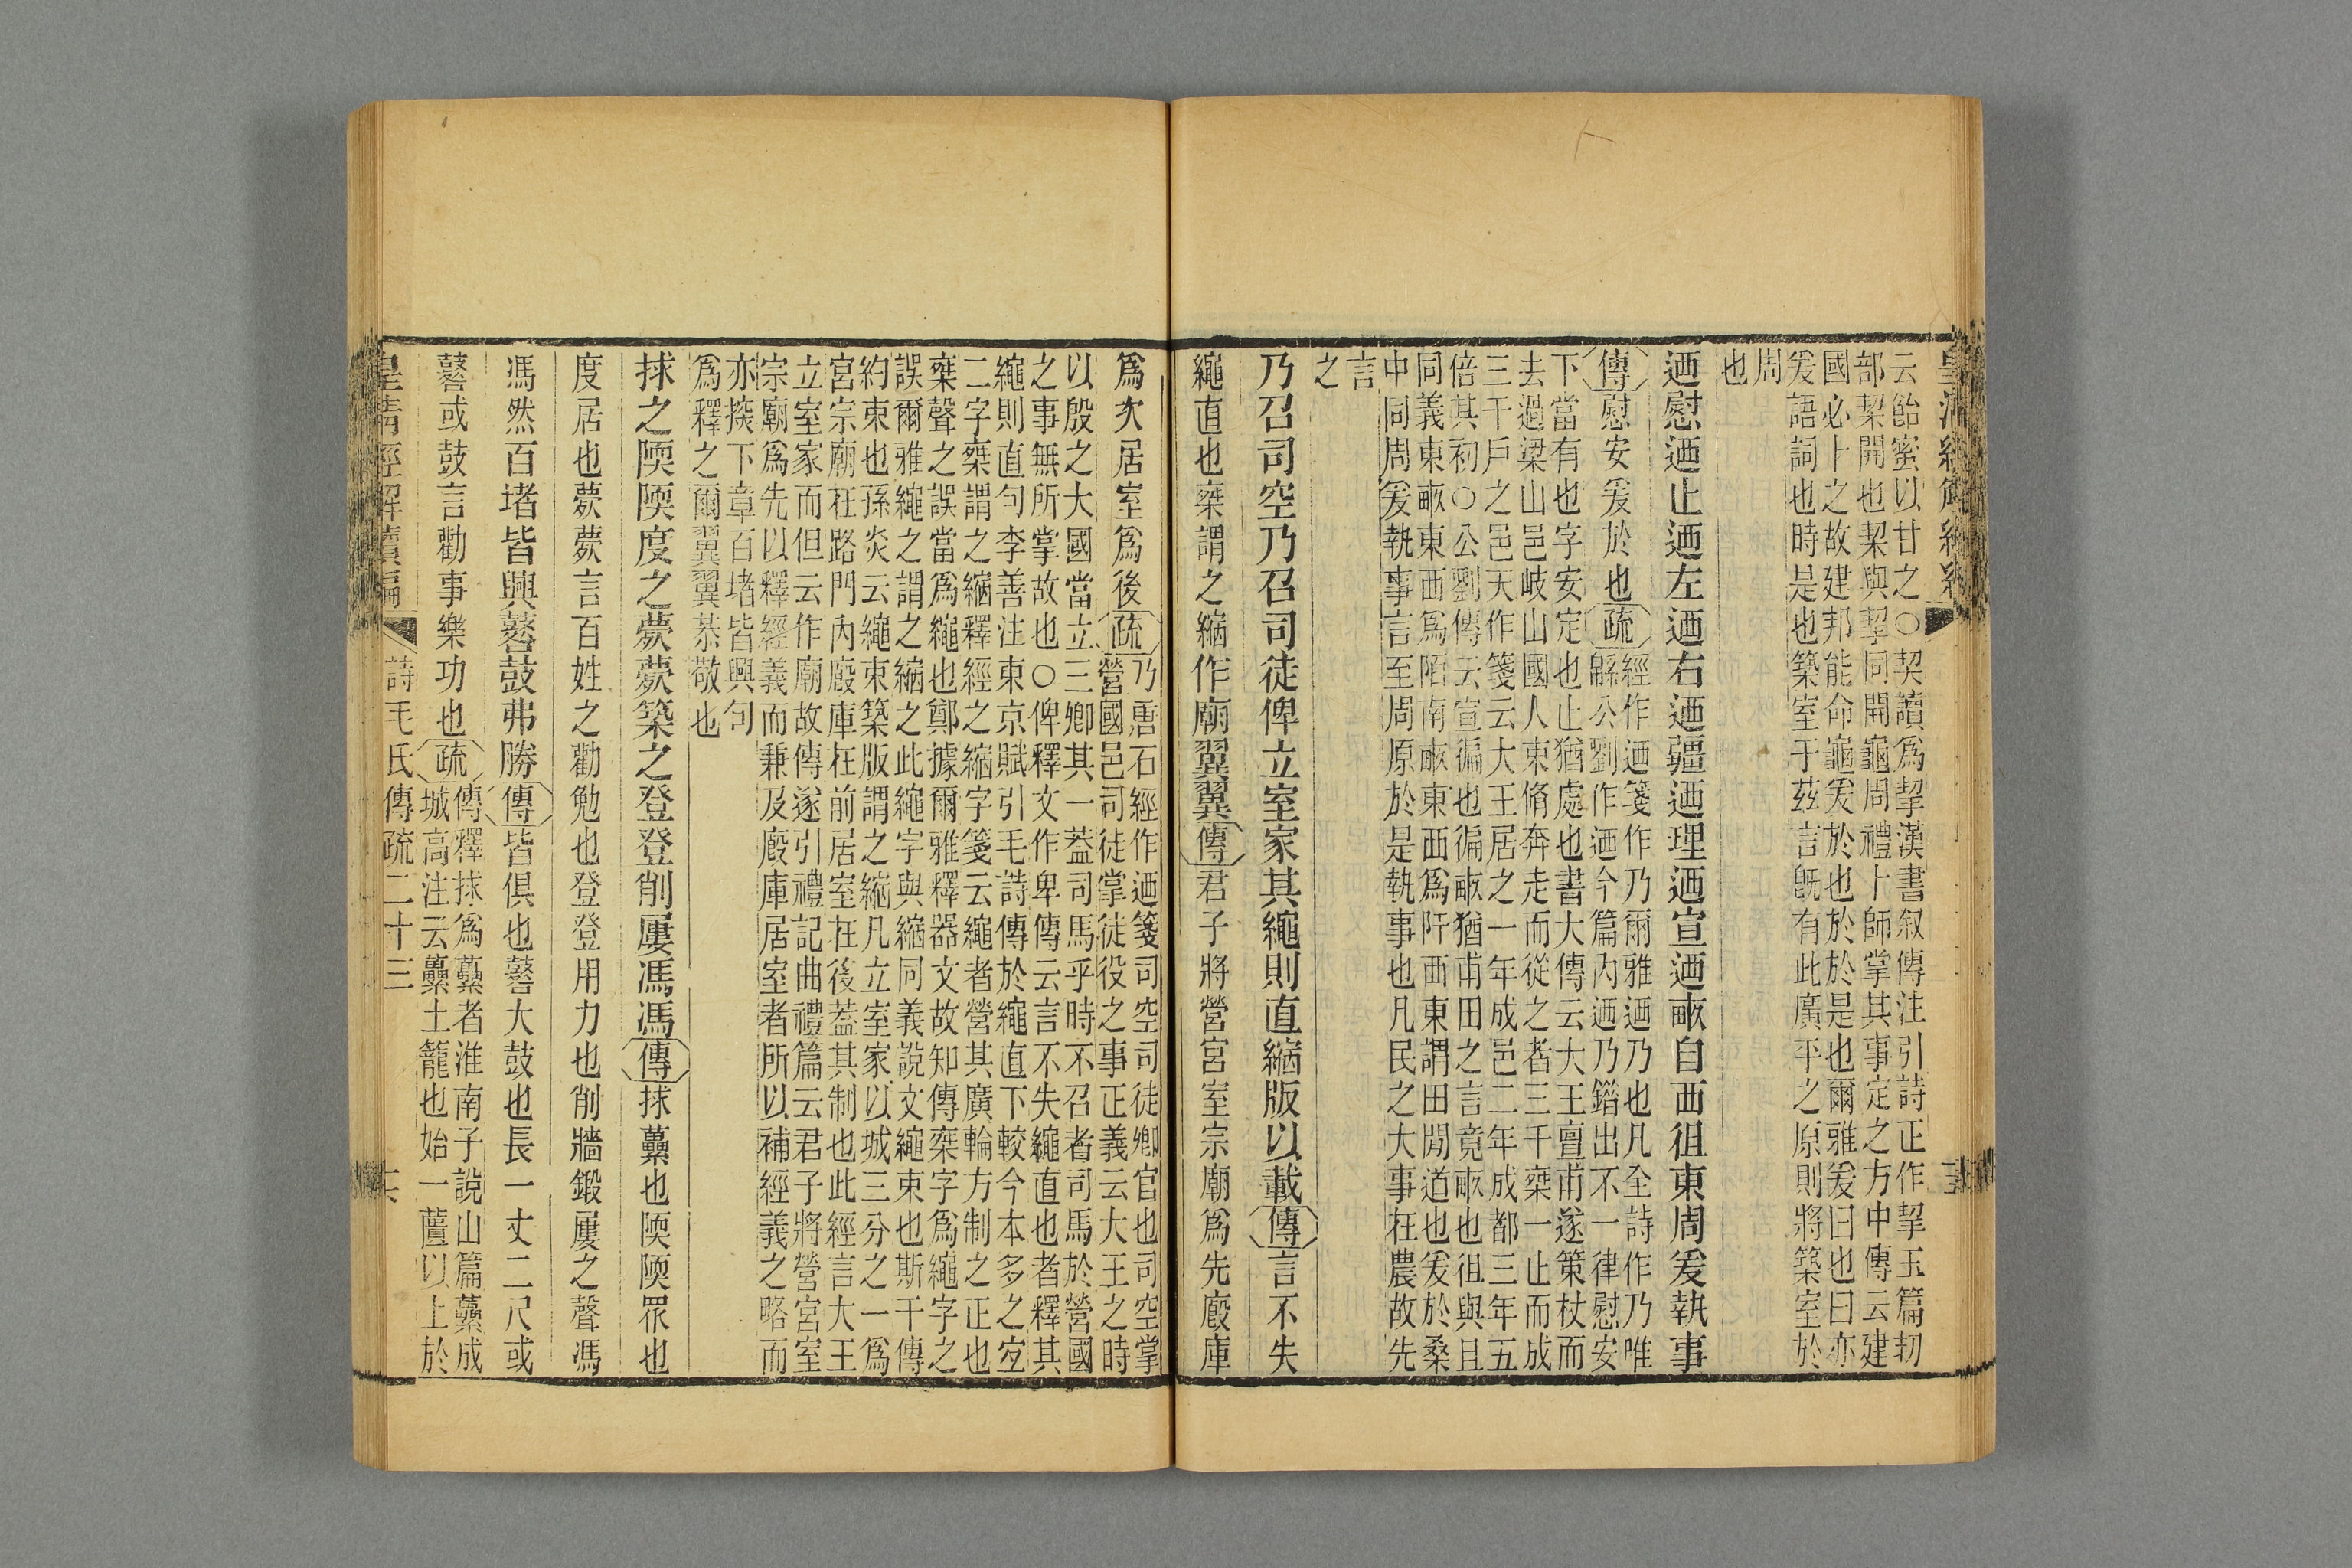 云飴蜜以甘之○契讀爲挈漢書叙傳注引詩正作挈玉篇㓞
部栔開也契與挈同開龜周禮卜師掌其事定之方中傳云建
國必卜之故建邦能命龜爰於也於於是也爾雅爰曰也曰亦
爰語詞也時是也築室于茲言旣有此廣平之原則將築室於
周
也
迺慰迺止迺左迺右迺疆迺理迺宣迺畝自西徂東周爰執事
傳慰安爰於也疏經作迺箋作乃爾雅迺乃也凡全詩作乃唯
緜公劉作迺今篇內迺乃錯出不一律慰安
下當有也字安定也止猶處也書大傳云大王亶甫遂策杖而
去過梁山邑岐山國人束脩奔走而從之者三千椉一止而成
三千戶之邑天作箋云大王居之一年成邑二年成都三年五
倍其初○公劉傳云宣徧也徧畝猶甫田之言竟畝也徂與且
同義東畝東西爲陌南畝東西爲阡西東謂田閒道也爰於桑
中同周爰執事言至周原於是執事也凡民之大事在農故先
言
之
乃召司空乃召司徒俾立室家其繩則直縮版以載傳言不失
繩直也椉謂之縮作廟翼翼傳君子將營宮室宗廟爲先廏庫
爲次居室爲後疏乃唐石經作迺箋司空司徒卿官也司空掌
營國邑司徒掌徒役之事正義云大王之時
以殷之大國當立三卿其一蓋司馬乎時不召者司馬於營國
之事無所掌故也○俾釋文作卑傳云言不失繩直也者釋其
繩則直句李善注東京賦引毛詩傳於繩直下較今本多之宐
二字椉謂之縮釋經之縮字箋云繩者營其廣輪方制之正也
椉聲之誤當爲繩也鄭據爾雅釋器文故知傳椉字爲繩字之
誤爾雅繩之謂之縮之此繩字與縮同義說文繩束也斯干傳
約束也孫炎云繩束築版謂之縮凡立室家以城三分之一爲
宮宗廟在路門內廏庫在前居室在後蓋其制也此經言大王
立室家而但云作廟故傳遂引禮記曲禮篇云君子將營宮室
宗廟爲先以釋經義而兼及廏庫居室者所以補經義之略而
亦探下章百堵皆興句
爲釋之爾翼翼恭敬也
捄之陾陾度之薨薨築之登登削屢馮馮傳捄虆也陾陾眾也
度居也薨薨言百姓之勸勉也登登用力也削牆鍛屢之聲馮
馮然百堵皆興鼛鼓弗勝傳皆俱也鼛大鼓也長一丈二尺或
鼛或鼓言勸事樂功也疏傳釋捄爲虆者淮南子說山篇虆成
城高注云虆土籠也始一虆以上於
皇清經解續編
詩毛氏傳疏二十三